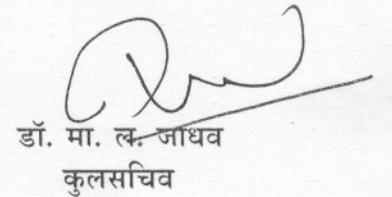 डॉ. मा. ल. जाधव
कुलसचिव